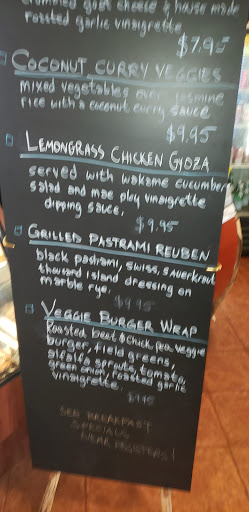 crumbled goat cheese & house made
roasted garlic vinaigrette
$7.95
COCONUT CURRY VEGGIES
mixed vegetables over jasmine
rice with a coconut curry sauce
$9.95
LEMONGRASS CHICKEN GYOZA
served with wakame cucumber
salad and mae ploy vinaigrette
dipping sauce.
$9.95
GRILLED PASTRAMI REUBEN
black pastrami, swiss, sauerkraut
thousand island dressing on
marble rye.
$9.95
VEGGIE BURGER WRAP
Roasted beet & chick pea veggie
burger, field greens,
alfalfa sprouts, tomato,
green onion, roasted garlic
vinaigrette.
$7.95
SEE BREAKFAST
SPECIALS
NEAR REGISTERS!